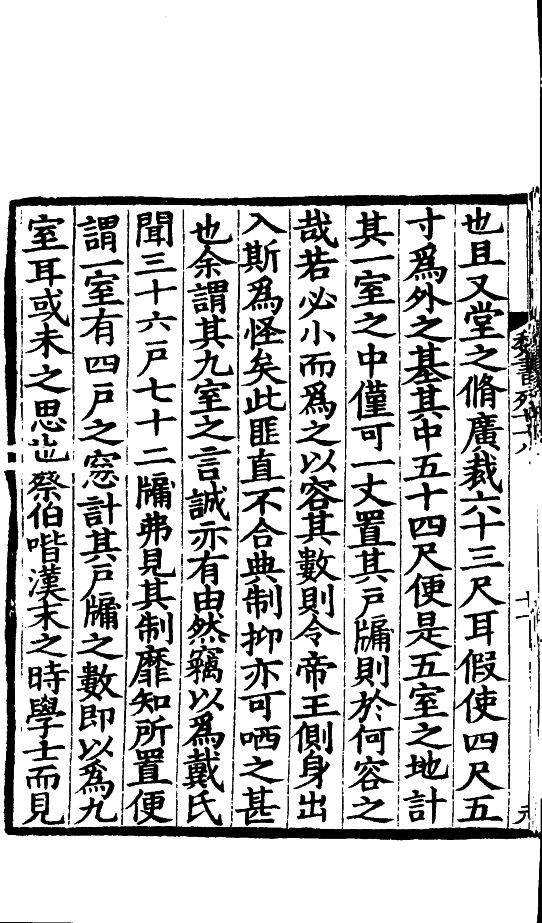 也且又堂之脩廣裁六十三尺耳假使四尺五
寸爲外之基其中五十四尺便是五室之地計
其一室之中僅可一丈置其戸牖則於何容之
哉若必小而爲之以容其數則令帝王側身出
入斯爲怪矣此匪直不合典制抑亦可哂之甚
也余謂其九室之言誠亦有由然竊以爲戴氏
聞三十六戸七十二牖弗見其制靡知所置便
謂一室有四戸之窓計其戸牖之數即以爲九
室耳或未之思也蔡伯喈漢末之時學士而見